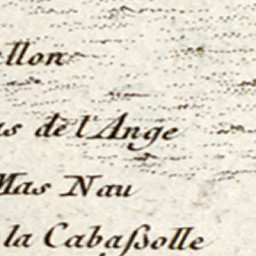 llon
as de l'Ange
Mas Nau
la Cabaßolle